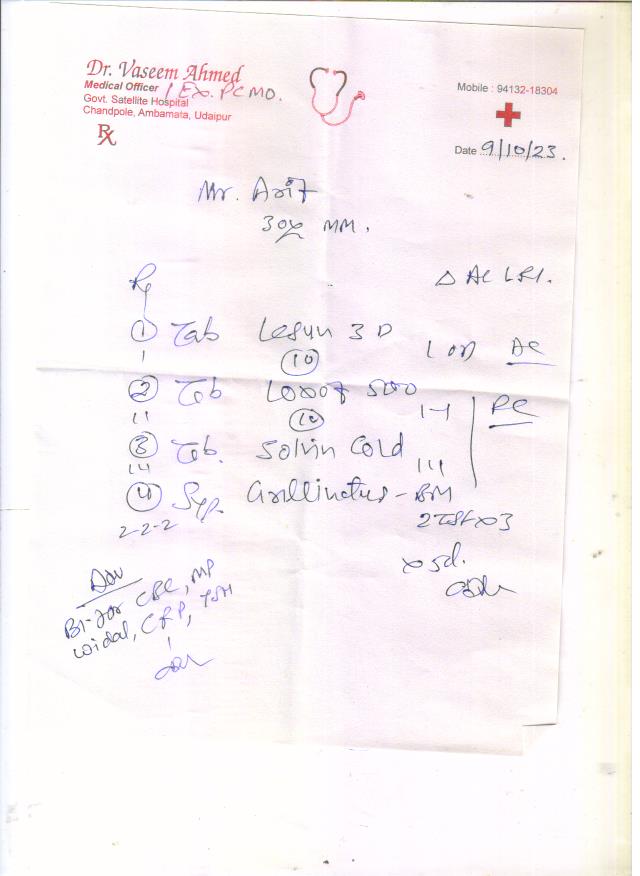 Dr. Vaseem Ahmed
Medical Officer / Ex. PCMO.
Govt. Satellite Hospital
Chandpole, Ambamata, Udaipur
Mobile : 94132-18304
Rx
Date 9/10/23.
Mr. Arif
30y MM.
Rx
Δ AC LRI.
① Tab 3D
1
⑩
1 OD AC
② Tab 500
11
⑩
1-1 PC
③ Tab. Solvin Cold
111
111
④ Syp. Grillinctus - BM
2-2-2
2TSF x 3
x 5d.
Adv
Bl- for CBC, MP
Widal, CRP, TSH